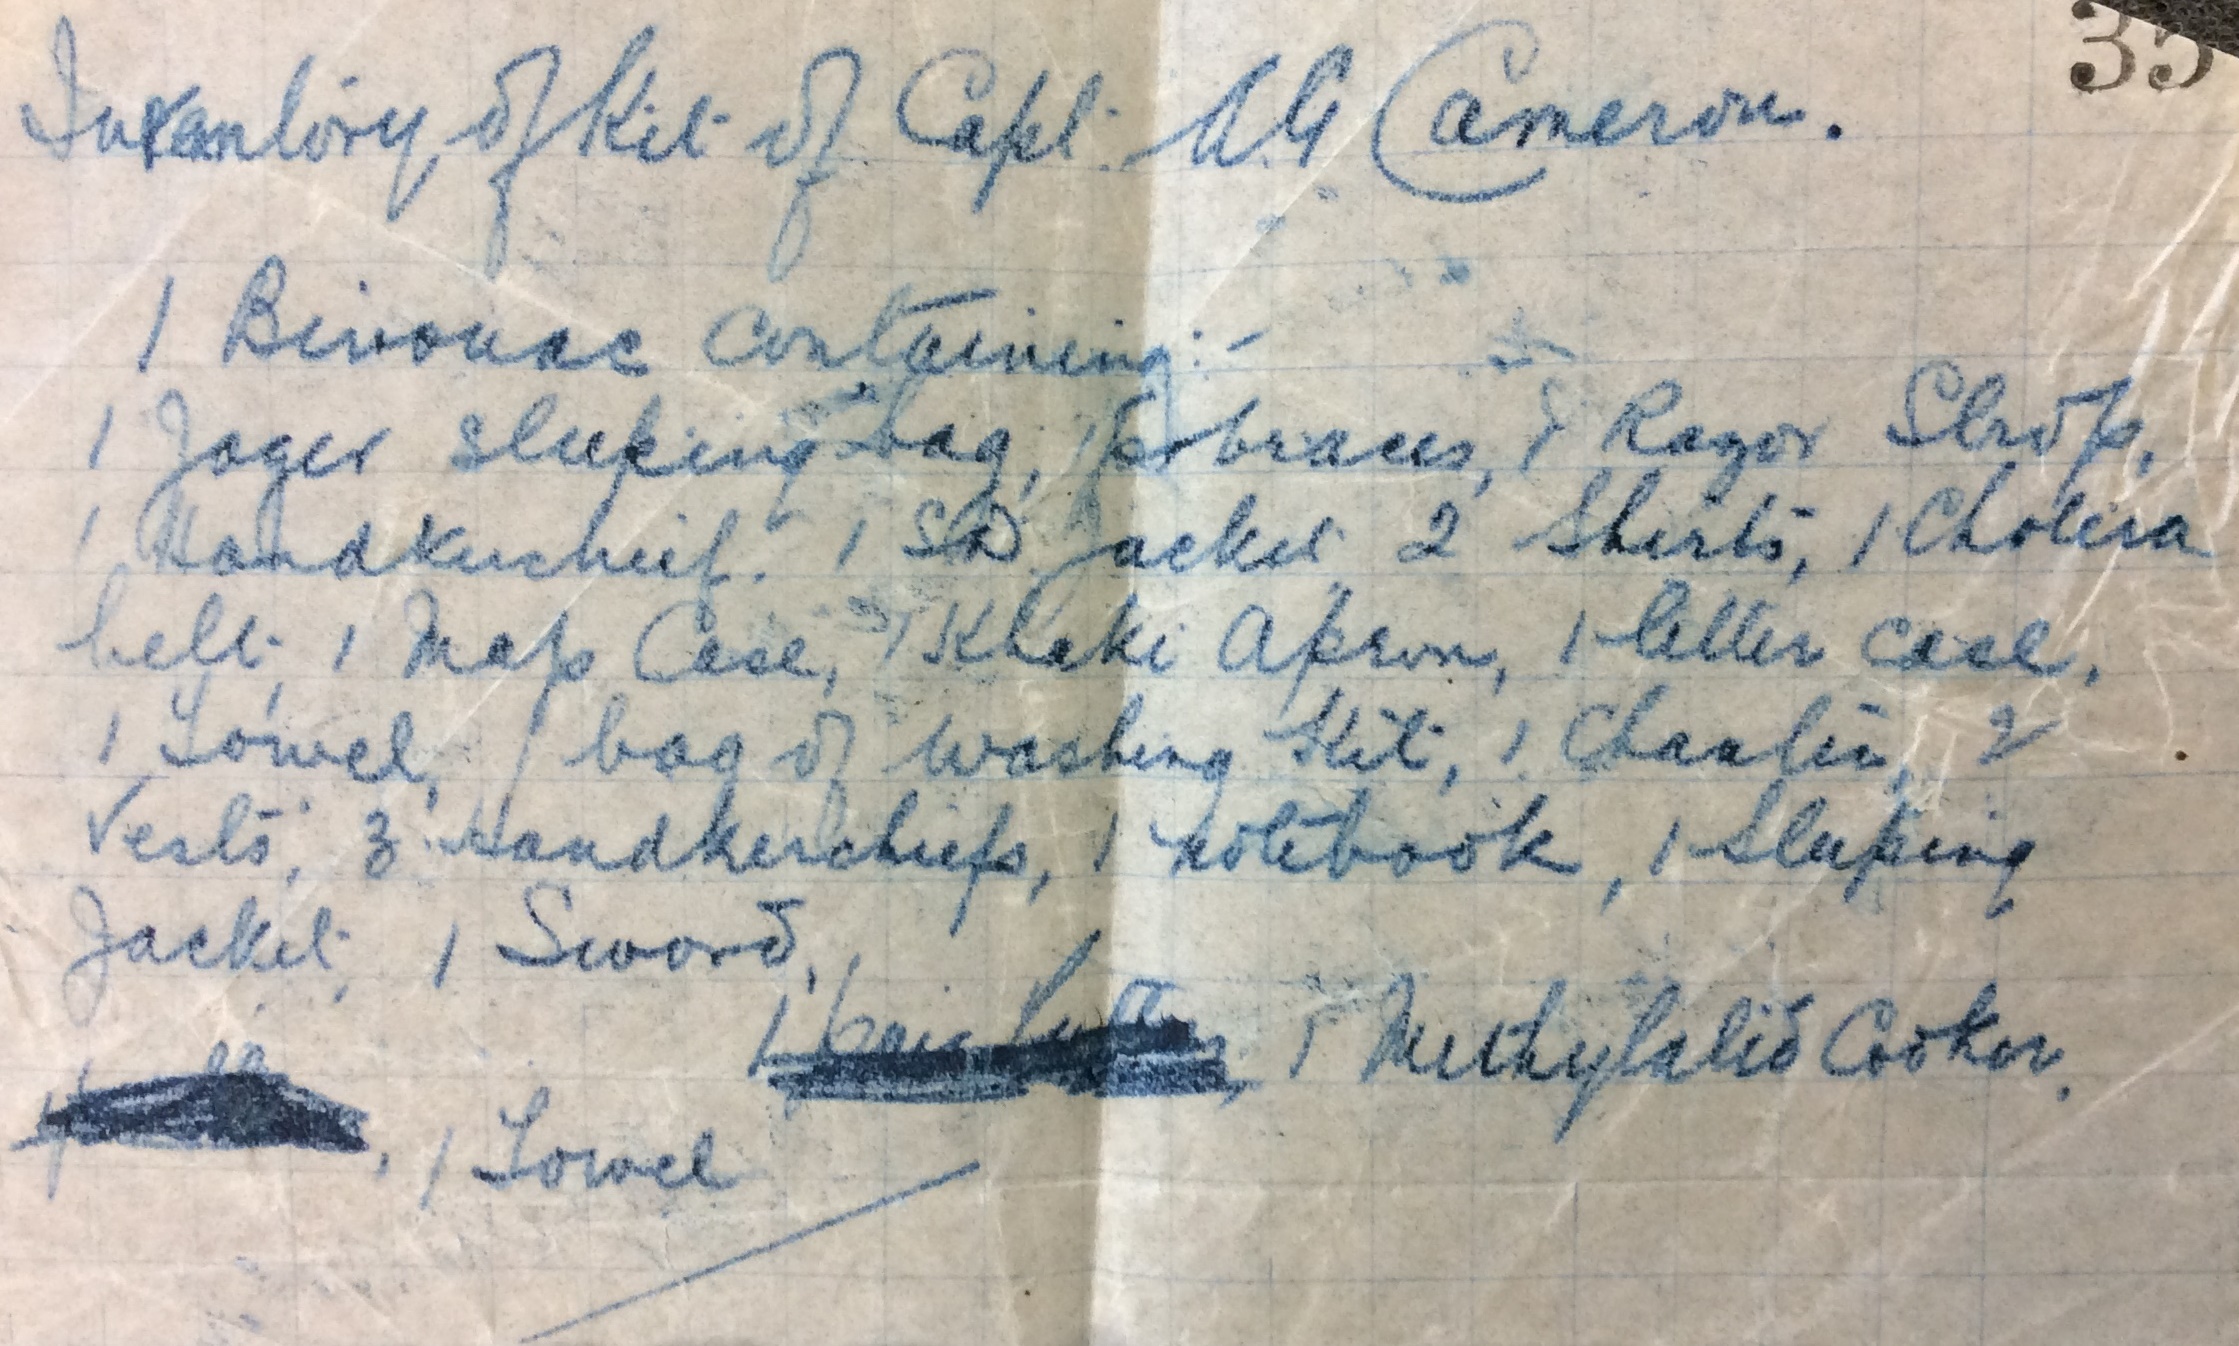 35
Inventory of Kit of Capt. AG Cameron.
1 Bivouac containing:-
1 Jager sleeping bag, 1 pr braces, 1 Razor Strop,
1 Handkercheif. 1 SD Jacket 2 Shirts, 1 Cholera
belt, 1 Map Case, 1 Khaki Apron, 1 letter case,
1 Towel, 1 bag of washing Kit, 1 2
Vests, 3 Handkerchiefs, 1 notebook, 1 Sleeping
Jacket, 1 Sword,
1 1 Methylalid Cooker,
, 1 Towel